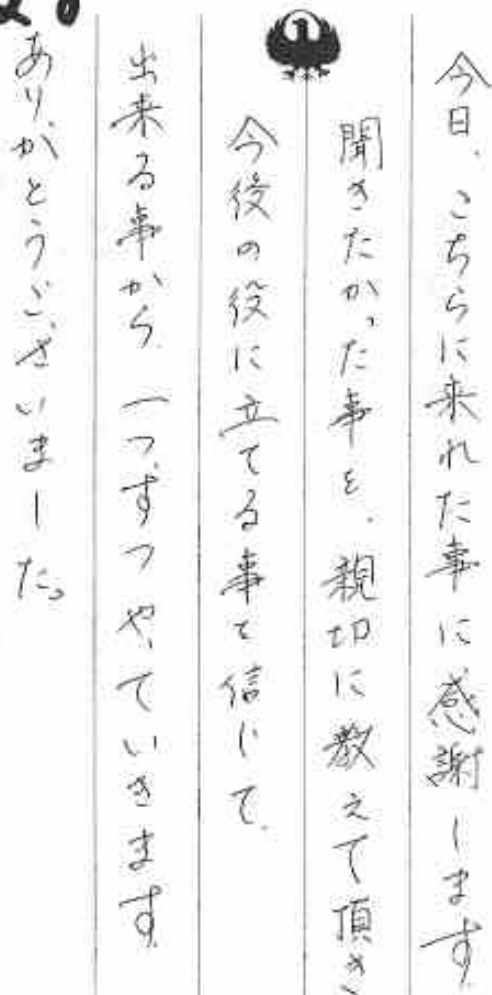 今日、こちらに来れた事に感謝します。
聞きたかった事を、親切に教えて頂き
今後の役に立てる事と信じて、
出来る事から、一つずつやっていきます。
ありがとうございました。